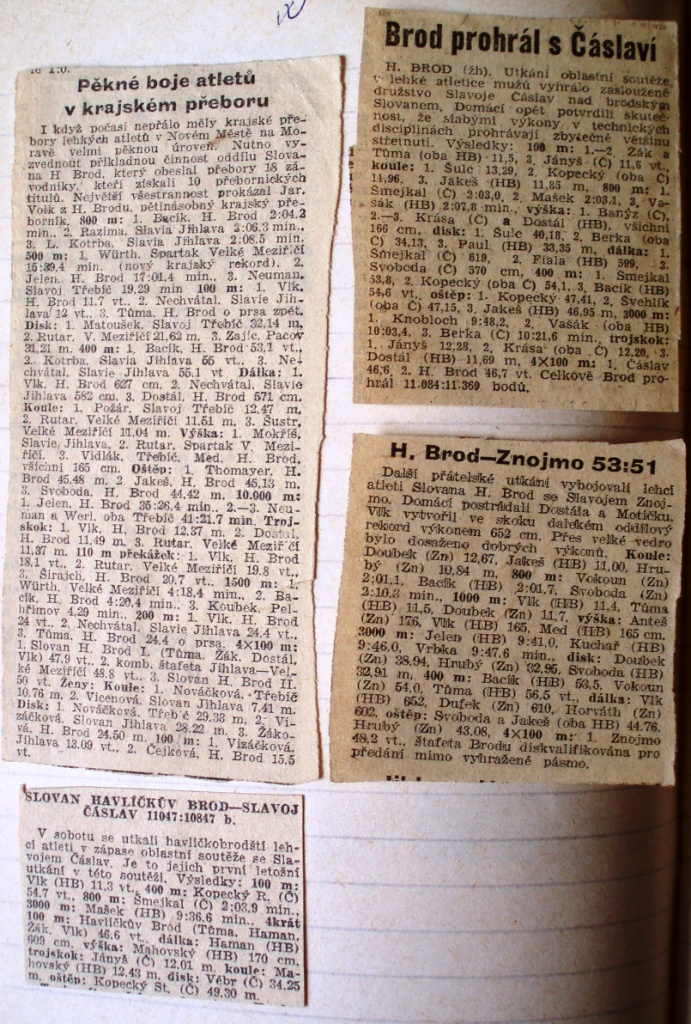 Pěkné boje atletů
v krajském přeboru
I když počasí nepřálo měly krajské pře-
bory lehkých atletů v Novém Městě na Mo-
ravě velmi pěknou úroveň. Nutno vy-
zvednout příkladnou činnost oddílu Slova-
na H Brod, který obeslal přebory 18 zá-
vodníky, kteří získali 10 přebornických
titulů. Největší všestrannost prokázal Jar.
Volk z H Brodu, pětinásobný krajský pře-
borník. 800 m: 1. Bacík, H. Brod 2:04.2
min., 2. Razima, Slavia Jihlava 2:06.3 min.,
3. L. Kotrba, Slavia Jihlava 2:08.5 min.
500 m: 1. Würth, Spartak Velké Meziříčí
15:39.4 min. (nový krajský rekord), 2.
Jelen, H. Brod 17:01.4 min., 3. Neuman,
Slavoj Třebíč 19,29 min 100 m: 1. Vlk,
H. Brod 11.7 vt., 2. Nechvátal, Slavie Jih-
lava 12 vt., 3. Tůma, H. Brod o prsa zpět.
Disk: 1. Matoušek, Slavoj Třebíč 32,14 m,
2. Rutar, V. Meziříčí 21,62 m, 3. Zajíc, Pacov
31,21 m. 400 m: 1. Bacík, H. Brod 53,1 vt.,
2. Kotrba, Slavia Jihlava 55 vt., 3. Ne-
chvátal, Slavie Jihlava 55,1 vt Dálka: 1.
Vlk, H. Brod 627 cm, 2. Nechvátal, Slavie
Jihlava 582 cm, 3. Dostál, H. Brod 571 cm.
Koule: 1. Požár, Slavoj Třebíč 12.47 m,
2. Rutar, Velké Meziříčí 11.51 m, 3. Šustr,
Velké Meziříčí 11.04 m. Výška: 1. Mokříš,
Slavie, Jihlava, 2. Rutar, Spartak V. Mezi-
říčí, 3. Vidlák, Třebíč, Med, H. Brod,
všichni 165 cm. Oštěp: 1. Thomayer, H.
Brod 45.48 m, 2. Jakeš, H. Brod 45,13 m,
3. Svoboda, H. Brod 44.42 m. 10.000 m:
1. Jelen, H. Brod 35:26.4 min., 2.—3. Neu-
man a Werl, oba Třebíč 41:21.7 min. Troj-
skok: 1. Vlk, H. Brod 12,37 m, 2. Dostal,
H. Brod 11,49 m, 3. Rutar, Velké Meziříčí
11,37 m. 110 m překážek: 1. Vlk, H. Brod
18,1 vt., 2. Rutar, Velké Meziříčí 19.8 vt.,
3. Šírajch, H. Brod 20,7 vt. 1500 m: 1.
Würth, Velké Meziříčí 4:18,4 min., 2. Ba-
cík, H. Brod 4:20.4 min., 3. Koubek, Pel-
hřimov 4,29 min., 200 m: 1. Vlk, H. Brod
24 vt., 2. Nechvátal, Slavia Jihlava 24,4 vt.,
3. Tůma, H. Brod 24,4 o prsa. 4×100 m:
1. Slovan H. Brod I. (Tůma, Žák, Dostál,
Vlk) 47,9 vt., 2. komb. štafeta Jihlava—Vel-
ké Meziříčí 48.8 vt., 3. Slovan H. Brod II.
50 vt. Ženy: Koule: 1. Nováčková, Třebíč
10.76 m, 2. Vicenová, Slovan Jihlava 7.41 m.
Disk: 1. Nováčková, Třebíč 29.33 m, 2. Vi-
záčková, Slovan Jihlava 28.22 m, 3. Žáko-
vá, H. Brod 24,50 m, 100 m: 1. Vizáčková,
Jihlava 13.09 vt., 2. Čejková, H. Brod 15,5
vt.
SLOVAN HAVLÍČKŮV BROD—SLAVOJ
ČÁSLAV 11047:10847 b.
V sobotu se utkali havlíčkobrodští leh-
cí atleti v zápase oblastní soutěže se Sla-
vojem Čáslav. Je to jejich první letošní
utkání v této soutěži. Výsledky: 100 m:
Vlk (HB) 11,3 vt., 400 m: Kopecký R. (Č)
54,7 vt., 800 m: Šmejkal (Č) 2:03,9 min.,
3000 m: Mašek (HB) 9:36,6 min., 4krát
100 m: Havlíčkův Brod (Tůma, Haman,
Žák, Vlk) 46,6 vt., dálka: Haman (HB)
609 cm, výška: Mahovský (HB) 170 cm,
trojskok: Jányš (Č) 12,01 m, koule: Ma-
hovský (HB) 12,43 m, disk: Vébr (Č) 34,25
m, oštěp: Kopecký St. (Č) 49,30 m.
Brod prohrál s Čáslaví
H. BROD (žh). Utkání oblastní soutěže
v lehké atletice mužů vyhrálo zaslouženě
družstvo Slavoje Čáslav nad brodským
Slovanem. Domácí opět potvrdili skuteč-
nost, že slabými výkony v technických
disciplinách prohrávají zbytečně většinu
střetnutí. Výsledky: 100 m: 1.—2. Žák a
Tůma (oba HB) 11,5, 3. Jányš (Č) 11,6 vt.,
koule: 1. Šulc 13,29, 2. Kopecký (oba Č)
11,96, 3. Jakeš (HB) 11,85 m, 800 m: 1.
Smejkal (Č) 2:03,0, 2. Mašek 2:03,1, 3. Va-
šák (HB) 2:07,8 min., výška: 1. Banýz (Č),
2.—3. Krása (Č) a Dostál (HB), všichni
166 cm, disk: 1. Šulc 40,18, 2. Berka (oba
Č) 34,13, 3. Paul (HB) 33,35 m, dálka: 1.
Smejkal (Č) 619, 2. Fiala (HB) 599, 3.
Svoboda (Č) 570 cm, 400 m: 1. Smejkal
53,8, 2. Kopecký (oba Č) 54,1, 3. Bacík (HB)
54,6 vt., oštěp: 1. Kopecký 47,41, 2. Švehlík
(oba Č) 47,15, 3. Jakeš (HB) 46,95 m, 3000 m:
1. Knobloch 9:48,2, 2. Vašák (oba HB)
10:03,4, 3. Berka (Č) 10:21,6 min., trojskok:
1. Jányš 12,28, 2. Krása (oba Č) 12,20, 3.
Dostál (HB) 11,69 m, 4X100 m: 1. Čáslav
46,6, 2. H. Brod 46,7 vt. Celkově Brod pro-
hrál 11.084:11.369 bodů.
H. Brod—Znojmo 53:51
Další přátelské utkání vybojovali lehcí
atleti Slovana H. Brod se Slavojem Znoj-
mo. Domácí postrádali Dostála a Motičku.
Vlk vytvořil ve skoku dalekém oddílový
rekord výkonem 652 cm. Přes velké vedro
bylo dosaženo dobrých výkonů. Koule:
Doubek (Zn) 12,67, Jakeš (HB) 11,00, Hru-
bý (Zn) 10,84 m, 800 m: Vokoun (Zn)
2:01,1, Bacík (HB) 2:01,7, Svoboda (Zn)
2:10,3 min., 1000 m: Vlk (HB) 11,4, Tůma
(HB) 11,5, Doubek (Zn) 11,7, výška: Anteš
(Zn) 176, Vlk (HB) 165, Med (HB) 165 cm,
3000 m: Jelen (HB) 9:41,0, Kuchař (HB)
9:46,0, Vrbka 9:47,6 min., disk: Doubek
(Zn) 38,94, Hrubý (Zn) 32,95, Svoboda (HB)
32,91 m, 400 m: Bacík (HB) 53,5, Vokoun
(Zn) 54,0, Tůma (HB) 56,5 vt., dálka: Vlk
(HB) 652, Dufek (Zn) 610, Horváth (Zn)
602, oštěp: Svoboda a Jakeš (oba HB) 44,76,
Hrubý (Zn) 43,08, 4X100 m: 1. Znojmo
48,2 vt., štafeta Brodu diskvalifikována pro
předání mimo vyhražené pásmo.